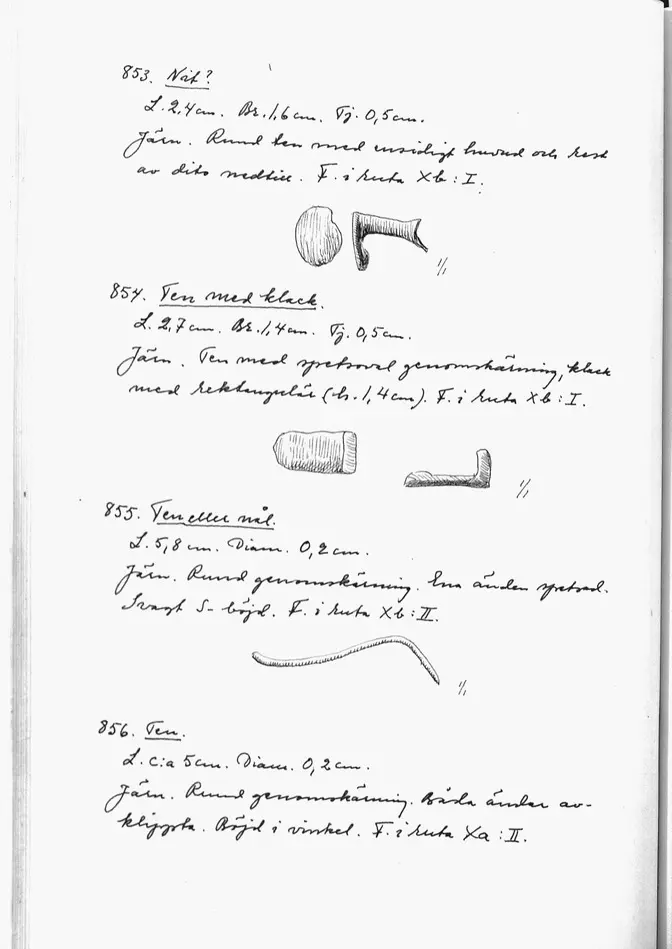 853. Nit?
L. 2,4 cm. Br. 1,6 cm. Tj. 0,5 cm.
Järn. Rund ten med ensidigt huvud och rest
av dito nedtill. F. i ruta Xb : I.
1/1
854. Ten med klack.
L. 2,7 cm. Br. 1,4 cm. Tj. 0,5 cm.
Järn. Ten med spetsoval genomskärning, klack
med rektangulär (h. 1,4 cm). F. i ruta Xb : I.
1/1
855. Ten eller nål.
L. 5,8 cm. Diam. 0,2 cm.
Järn. Rund genomskärning. Ena änden spetsad.
Svagt S-böjd. F. i ruta Xb : II.
1/1
856. Ten.
L. c:a 5 cm. Diam. 0,2 cm.
Järn. Rund genomskärning. Båda ändar av-
klippta. Böjd i vinkel. F. i ruta Xa : II.